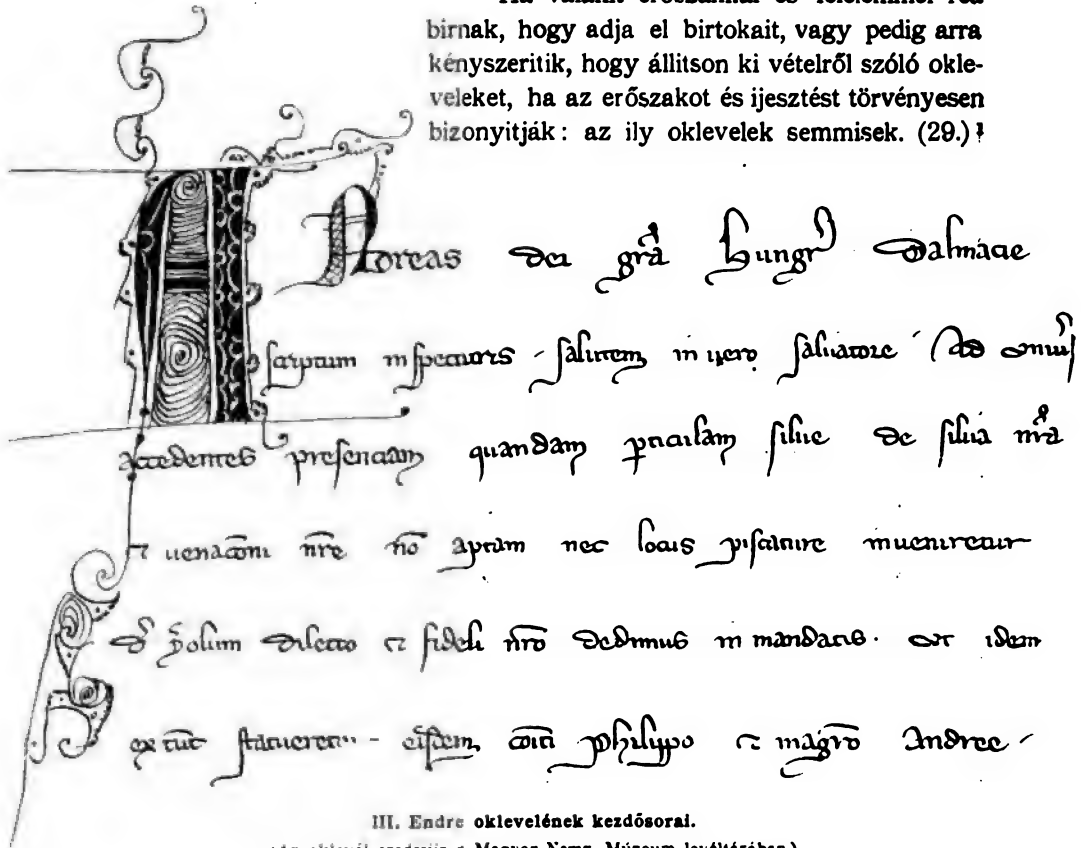 birnak, hogy adja el birtokait, vagy pedig arra
kényszeritik, hogy állitson ki vételről szóló okle-
veleket, ha az erőszakot és ijesztést törvényesen
bizonyitják: az ily oklevelek semmisek. (29.)
Andreas dei gr̄a Hungr̄ Dalmacie
scriptum inspecturis · salutem in uero saluatore Ad
accedentes presenciam quandam p̄ticulam silue de silua nr̄a
⁊ uenac̄oni nr̄e nō aptam nec locus piscature inueniretur
dilecto ⁊ fideli nr̄o dedimus in mandatis. Vt idem
ex tūc statuerent · com̄ Philippo ⁊ magr̄o Andree
III. Endre oklevelének kezdősorai.